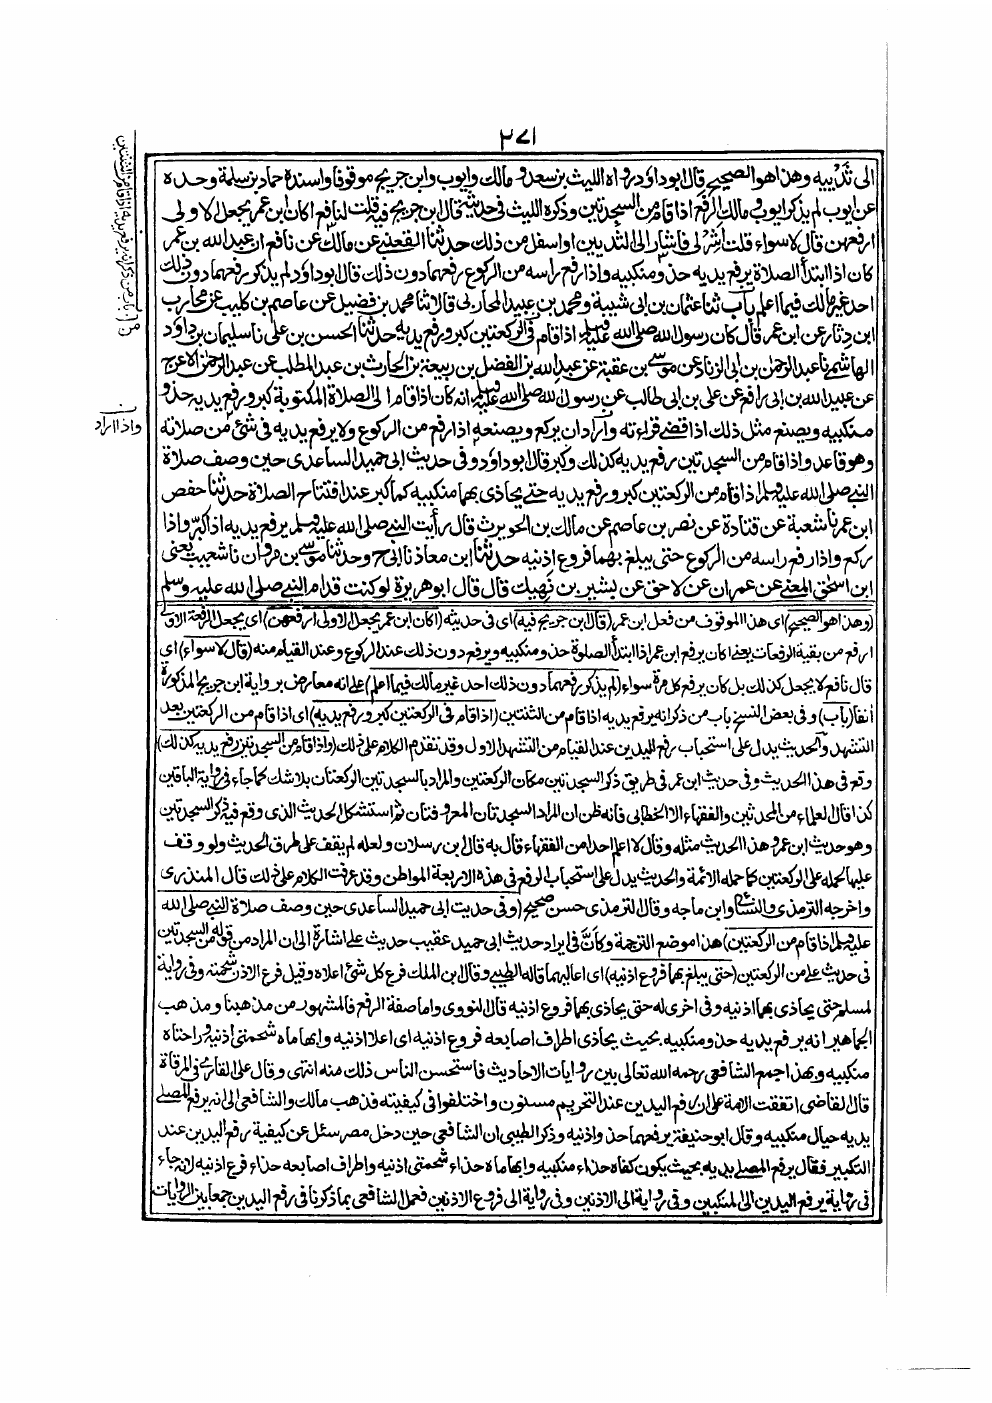 ٢٧١
الى ثدييه وهذا هو الصحيح قال ابو داود رواه الليث بن سعد ومالك وايوب وابن جريج موقوفا واسنده حماد بن سلمة وحده
عن ايوب لم يذكر ايوب ومالك الرفع اذا قام من السجدتين وذكره الليث في حديثه قال ابن جريج فيه قلت لنافع اكان ابن عمر يجعل الاولى
ارفعهن قال لا سواء قلت اشر لي فاشار الى الثديين او اسفل من ذلك حدثنا القعنبي عن مالك عن نافع ان عبد الله بن عمر
كان اذا ابتدأ الصلاة يرفع يديه حذو منكبيه واذا رفع راسه من الركوع رفعهما دون ذلك قال ابو داود لم يذكر رفعهما دون ذلك
احد غير مالك فيما اعلم باب ثنا عثمان بن ابي شيبة ومحمد بن عبيد المحاربي قالا ثنا محمد بن فضيل عن عاصم بن كليب عن محارب
ابن دثار عن ابن عمر قال كان رسول الله صلى الله عليه وسلم اذا قام في الركعتين كبر ورفع يديه حدثنا الحسن بن علي نا سليمان بن داود
الهاشمي نا عبد الرحمن بن ابي الزناد عن موسى بن عقبة عن عبد الله بن الفضل بن ربيعة بن الحارث بن عبد المطلب عن عبد الرحمن الاعرج
عن عبيد الله بن ابي رافع عن علي بن ابي طالب عن رسول الله صلى الله عليه وسلم انه كان اذا قام الى الصلاة المكتوبة كبر ورفع يديه حذو
منكبيه ويصنع مثل ذلك اذا قضى قراءته وأراد ان يركع ويصنعه اذا رفع من الركوع ولا يرفع يديه في شئ من صلاته
وهو قاعد واذا قام من السجدتين رفع يديه كذلك وكبر قال ابو داود وفي حديث ابي حميد الساعدي حين وصف صلاة
النبي صلى الله عليه وسلم اذا قام من الركعتين كبر ورفع يديه حتى يحاذي بهما منكبيه كما كبر عند افتتاح الصلاة حدثنا حفص
ابن عمر نا شعبة عن قتادة عن نصر بن عاصم عن مالك بن الحويرث قال رأيت النبي صلى الله عليه وسلم يرفع يديه اذا كبر واذا
ركع واذا رفع راسه من الركوع حتى يبلغ بهما فروع اذنيه حدثنا ابن معاذ نا ابي ح وحدثنا موسى بن مروان نا شعيب يعني
ابن اسحق المعنى عن عمران عن لاحق عن بشير بن نهيك قال قال ابو هريرة لو كنت قدام النبي صلى الله عليه وسلم
(وهذا هو الصحيح) اي هذا الموقوف من فعل ابن عمر (قال ابن جريج فيه) اي في حديثه (اكان ابن عمر يجعل الاولى ارفعهن) اي يجعل الرفعة الاولى
ارفع من بقية الرفعات يعني اكان يرفع ابن عمر اذا ابتدأ الصلوة حذو منكبيه ويرفع دون ذلك عند الركوع وعند القيام منه (قال لا سواء) اي
قال نافع لا يجعل كذلك بل كان يرفع كل مرة سواء (لم يذكر رفعهما دون ذلك احد غير مالك فيما اعلم) على انه معارض برواية ابن جريج المذكورة
آنفا (باب) وفي بعض النسخ باب من ذكر انه يرفع يديه اذا قام من الثنتين (اذا قام في الركعتين كبر ورفع يديه) اي اذا قام من الركعتين بعد
التشهد والحديث يدل على استحباب رفع اليدين عند القيام من التشهد الاول وقد تقدم الكلام على ذلك (واذا قام من السجدتين رفع يديه كذلك)
وقع في هذا الحديث وفي حديث ابن عمر في طريق ذكر السجدتين مكان الركعتين والمراد بالسجدتين الركعتان بلا شك كما جاء في رواية الباقين
كذا قال العلماء من المحدثين والفقهاء الا الخطابي فانه ظن ان المراد السجدتان المعروفتان ثم استشكل الحديث الذي وقع فيه ذكر السجدتين
وهو حديث ابن عمر وهذا الحديث مثله وقال لا اعلم احدا من الفقهاء قال به قال ابن رسلان ولعله لم يقف على طرق الحديث ولو وقف
عليها لحمله على الركعتين كما حمله الائمة والحديث يدل على استحباب الرفع في هذه الاربعة المواطن وقد عرفت الكلام على ذلك قال المنذري
واخرجه الترمذي والنسائي وابن ماجه وقال الترمذي حسن صحيح (وفي حديث ابي حميد الساعدي حين وصف صلاة النبي صلى الله
عليه وسلم اذا قام من الركعتين) هذا موضع الترجمة وكأن في ايراد حديث ابي حميد عقيب حديث علي اشارة الى ان المراد من قوله من السجدتين
في حديث علي من الركعتين (حتى يبلغ بهما فروع اذنيه) اي اعاليهما قاله الطيبي وقال ابن الملك فرع كل شئ اعلاه وقيل فرع الاذن شحمته وفي رواية
لمسلم حتى يحاذي بهما اذنيه وفي اخرى له حتى يحاذي بهما فروع اذنيه قال النووي واما صفة الرفع فالمشهور من مذهبنا ومذهب
الجماهير انه يرفع يديه حذو منكبيه بحيث يحاذي اطراف اصابعه فروع اذنيه اي اعلا اذنيه وابهاماه شحمتي اذنيه وراحتاه
منكبيه وبهذا جمع الشافعي رحمه الله تعالى بين روايات الاحاديث فاستحسن الناس ذلك منه انتهى وقال علي القاري في المرقاة
قال القاضي اتفقت الامة على ان رفع اليدين عند التحريم مسنون واختلفوا في كيفيته فذهب مالك والشافعي الى انه يرفع المصلي
يديه حيال منكبيه وقال ابو حنيفة يرفعهما حذو اذنيه وذكر الطيبي ان الشافعي حين دخل مصر سئل عن كيفية رفع اليدين عند
التكبير فقال يرفع المصلي يديه بحيث يكون كفاه حذاء منكبيه وابهاماه حذاء شحمتي اذنيه واطراف اصابعه حذاء فرع اذنيه لانه جاء
في رواية يرفع اليدين الى المنكبين وفي رواية الى الاذنين وفي رواية الى فروع الاذنين فعمل الشافعي بما ذكرنا في رفع اليدين جمعا بين الروايات
باب من ذكر انه يرفع يديه اذا قام من الثنتين
واذا اراد